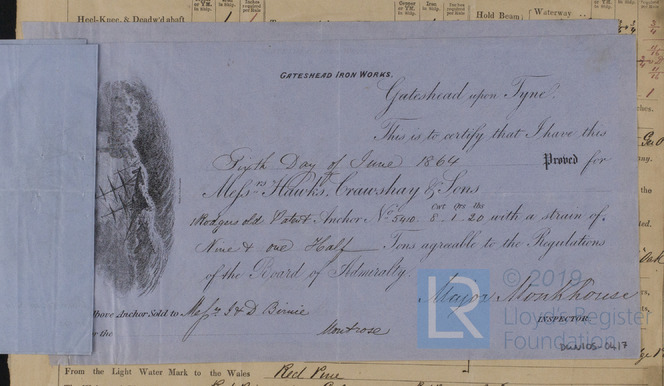 Heel-Knee, & Deadw'd abaft
Hold Beam
Waterway
GATESHEAD IRON WORKS.
Gateshead upon Tyne.
This is to certify that I have this
Sixth Day of June 1864 Proved for
Mess.rs Hawks, Crawshay & Sons
Cwt Qrs lbs
Rodgers old Patent Anchor No. 540. 8-1-20 with a strain of.
Nine & one Half Tons agreable to the Regulations
of the Board of Admiralty.
Major Monkhouse
INSPECTOR.
Above Anchor Sold to Mess.rs J & D Birnie
for the Montrose
© 2019
LR
Lloyd's Register
Foundation
DUN105-0417
From the Light Water Mark to the Wales Red Pine